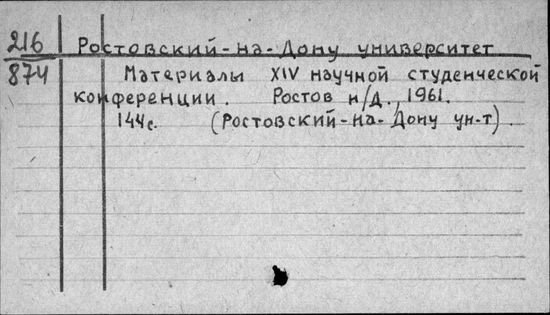 216 Ростовский-на-Дону университет
874 Материалы XIV научной студенческой
конференции. Ростов н/Д., 1961.
144с. (Ростовский-на-Дону ун-т).